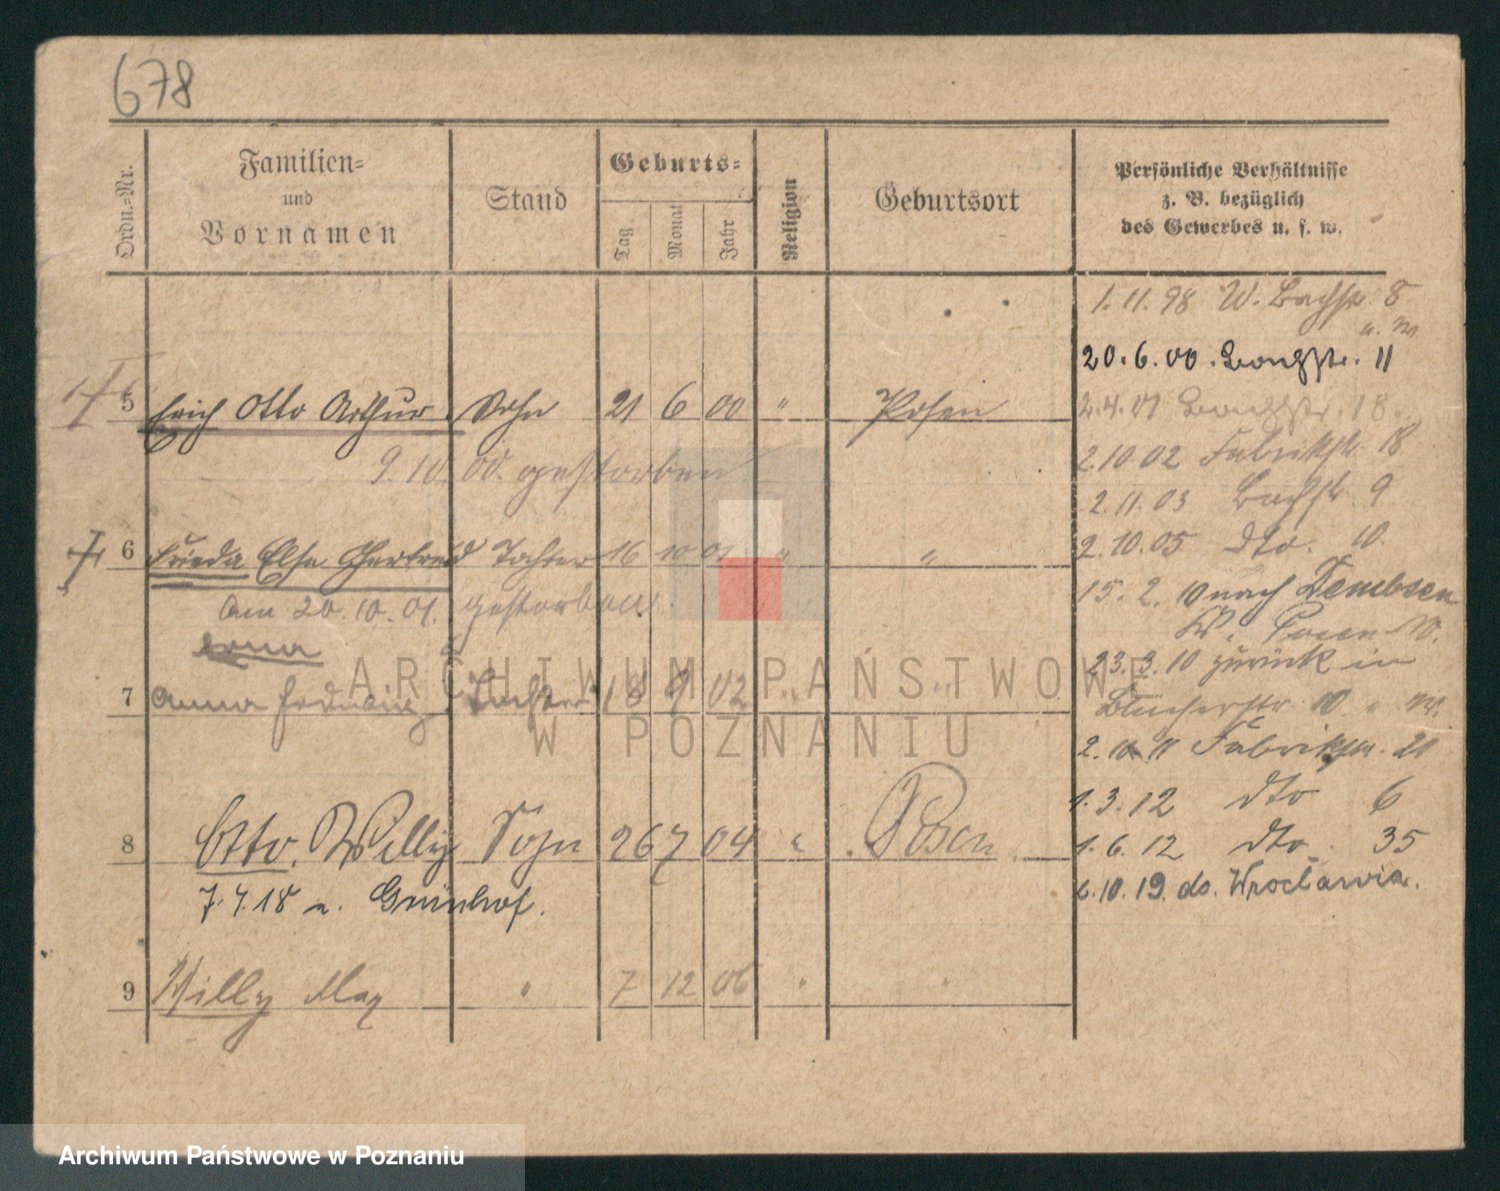 678
Ordn.-Nr.
Familien-
und
Vornamen
Stand
Geburts-
Tag
Monat
Jahr
Religion
Geburtsort
Persönliche Verhältnisse
z. B. bezüglich
des Gewerbes u. s. w.
1. 11. 98 W. Bachstr. 8
20. 6. 00. 11
5 Erich Otto Arthur Sohn 21 6 00 " Posen
2. 4. 01 18
9. 10. 00. gestorben
2. 10. 02 Fabrikstr. 18
2. 11. 03 Bachstr. 9
6 Frieda Else Gertrud Tochter 16 10 01 " "
2. 10. 05 dto. 10.
am 20. 10. 01. gestorben.
15. 2. 10 nach Dembsen
Erna
23. 3. 10 zurück in
7 Anna Hedwig Tochter 18 9 02 " "
Blücherstr. 10
2. 10. 11 Fabrikstr. 21
1. 3. 12 dto 6
8 Otto Willy Sohn 26 7 04 " Posen
1. 6. 12 dto. 35
7. 4. 18 n. Grünhof.
6. 10. 19. do. Wrocławia.
9 Willy Max " 7 12 06 " "
ARCHIWUM PAŃSTWOWE
W POZNANIU
Archiwum Państwowe w Poznaniu